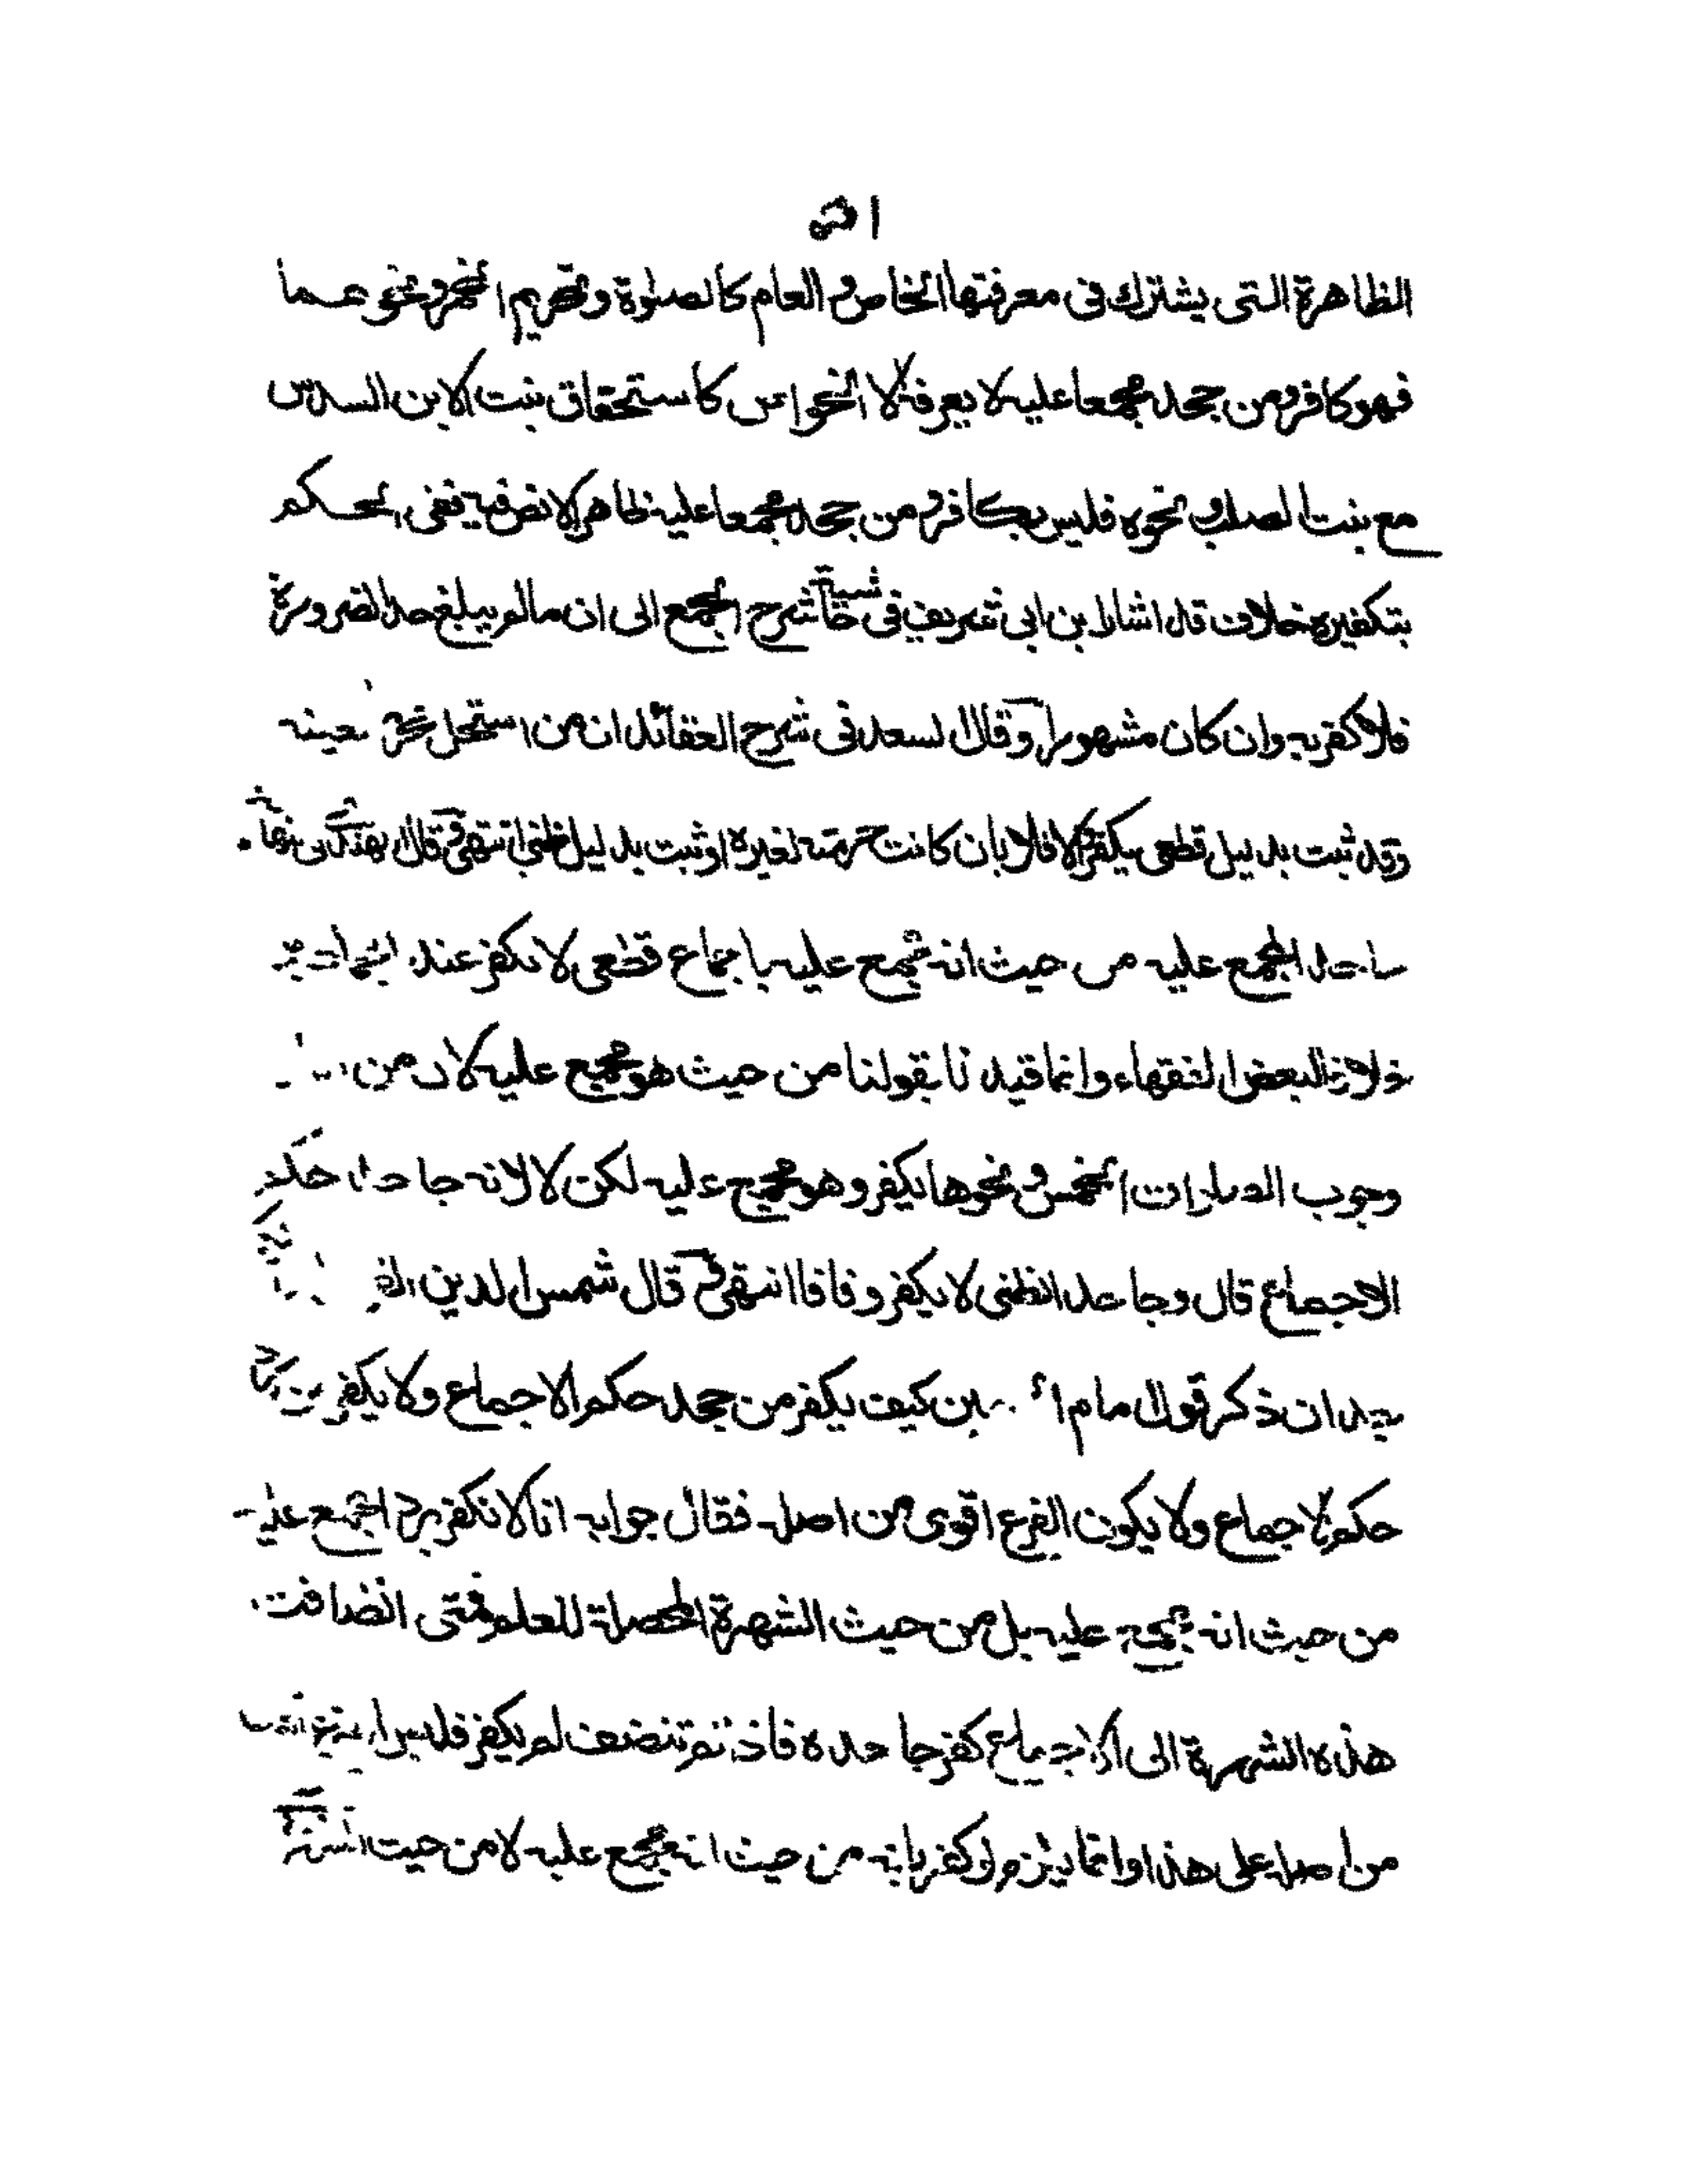 الظاهرة التى يشترك فى معرفتها الخاص و العام كالصلوة وتحريم الخمر ونحوهما
فهو كافر ومن جحد مجمعا عليه لا يعرفه الا الخواص كاستحقاق بنت الابن السدس
مع بنت الصلب ونحوه فليس بكافر ومن جحد مجمعا عليه ظاهرا لا نص فيه ففى الحكم
بتكفيره خلاف قد اشار ابن ابى شريف فى شرح الجمع الى ان ما لم يبلغ حد الضرورة
فلا كفر به وان كان مشهورا وقال السعد فى شرح العقائد ان من استحل محرما لعينه
وقد ثبت بدليل قطعى يكفر والا فلا بان كانت حرمته لغيره او ثبت بدليل ظنى انتهى وقال
جاحد المجمع عليه من حيث انه مجمع عليه باجماع قطعى لا يكفر عند
خلافا لبعض الفقهاء وانما قيدنا بقولنا من حيث هو مجمع عليه لان من
وجوب الصلوات الخمس ونحوها يكفر وهو مجمع عليه لكن لا لانه جاحد حكم
الاجماع قال وجاحد الظنى لا يكفر وفاقا انتهى قال شمس الدين
بعد ان ذكر قول امام كيف يكفر من جحد حكم الاجماع ولا يكفر من رد
حكم الاجماع ولا يكون الفرع اقوى من اصله فقال جوابه انا لا نكفر برد المجمع عليه
من حيث انه مجمع عليه بل من حيث الشهرة المحصلة للعلم فمتى انضافت
هذه الشهرة الى الاجماع كفر جاحده فاذا لم تنضف لم يكفر فليس
من اصله على هذا وانما يلزم لو كفر بانه من حيث انه مجمع عليه لا من حيث الشهرة